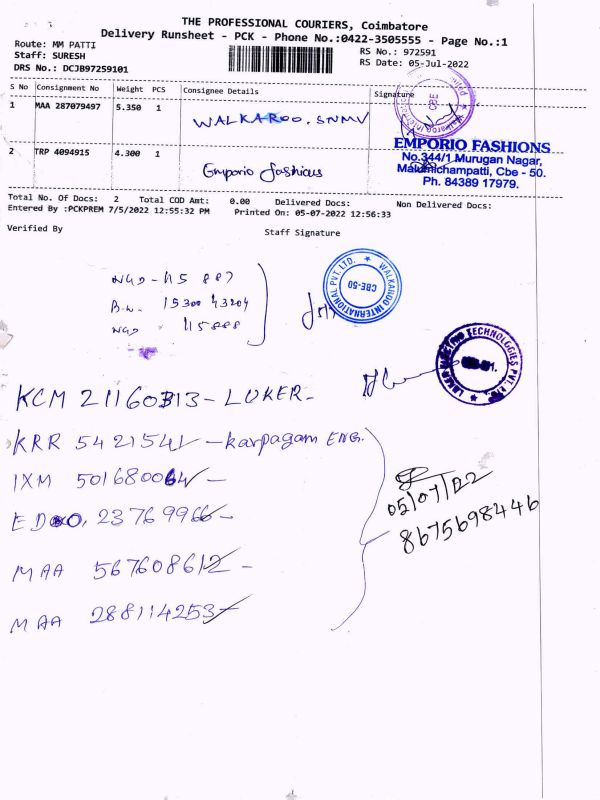 THE PROFESSIONAL COURIERS, Coimbatore
Delivery Runsheet - PCK - Phone No.:0422-3505555 - Page No.:1
Route: MM PATTI
Staff: SURESH
DRS No.: DCJB97259101
RS No.: 972591
RS Date: 05-Jul-2022
S No Consignment No Weight PCS Consignee Details Signature
1 MAA 287079497 5.350 1 WALKAROO. SNMV
2 TRP 4094915 4.300 1 Emporio fashions
EMPORIO FASHIONS
No.344/1 Murugan Nagar,
Malumichampatti, Cbe - 50.
Ph. 84389 17979.
Total No. Of Docs: 2 Total COD Amt: 0.00 Delivered Docs: Non Delivered Docs:
Entered By :PCKPREM 7/5/2022 12:55:32 PM Printed On: 05-07-2022 12:56:33
Verified By Staff Signature
WALKAROO INTERNATIONAL PVT. LTD.
CBE-50
KCM 21160313 - LUKER -
KRR 5421541 - karpagam ENG.
IXM 50168006
23769966 -
MAA 567608612 -
MAA 288114253 -
05/07/22
8675698446